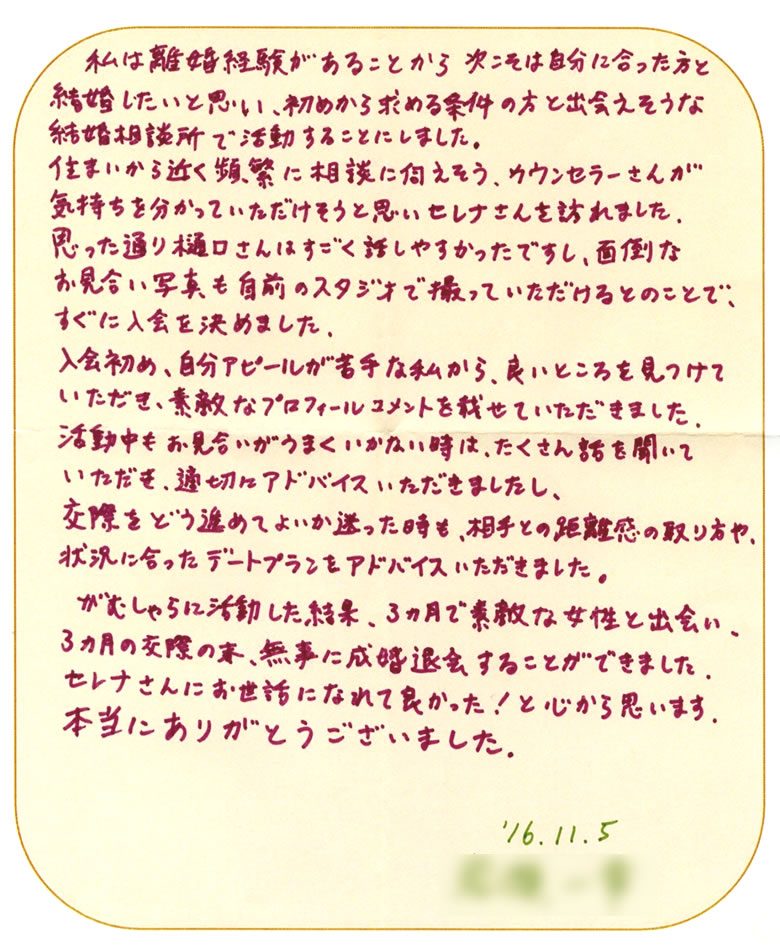 私は離婚経験があることから 次こそは自分に合った方と
結婚したいと思い、初めから求める条件の方と出会えそうな
結婚相談所で活動することにしました。
住まいから近く頻繁に相談に伺えそう、カウンセラーさんが
気持ちを分かっていただけそうと思いセレナさんを訪れました.
思った通り樋口さんはすごく話しやすかったですし、面倒な
お見合い写真も自前のスタジオで撮っていただけるとのことで、
すぐに入会を決めました.
入会初め、自分アピールが苦手な私から、良いところを見つけて
いただき、素敵なプロフィールコメントを載せていただきました.
活動中もお見合いがうまくいかない時は、たくさん話を聞いて
いただき、適切にアドバイスいただきましたし、
交際をどう進めてよいか迷った時も、相手との距離感の取り方や、
状況に合ったデートプランをアドバイスいただきました。
がむしゃらに活動した結果、3ヵ月で素敵な女性と出会い、
3ヵ月の交際の末、無事に成婚退会することができました.
セレナさんにお世話になれて良かった!と心から思います.
本当にありがとうございました.
'16.11.5